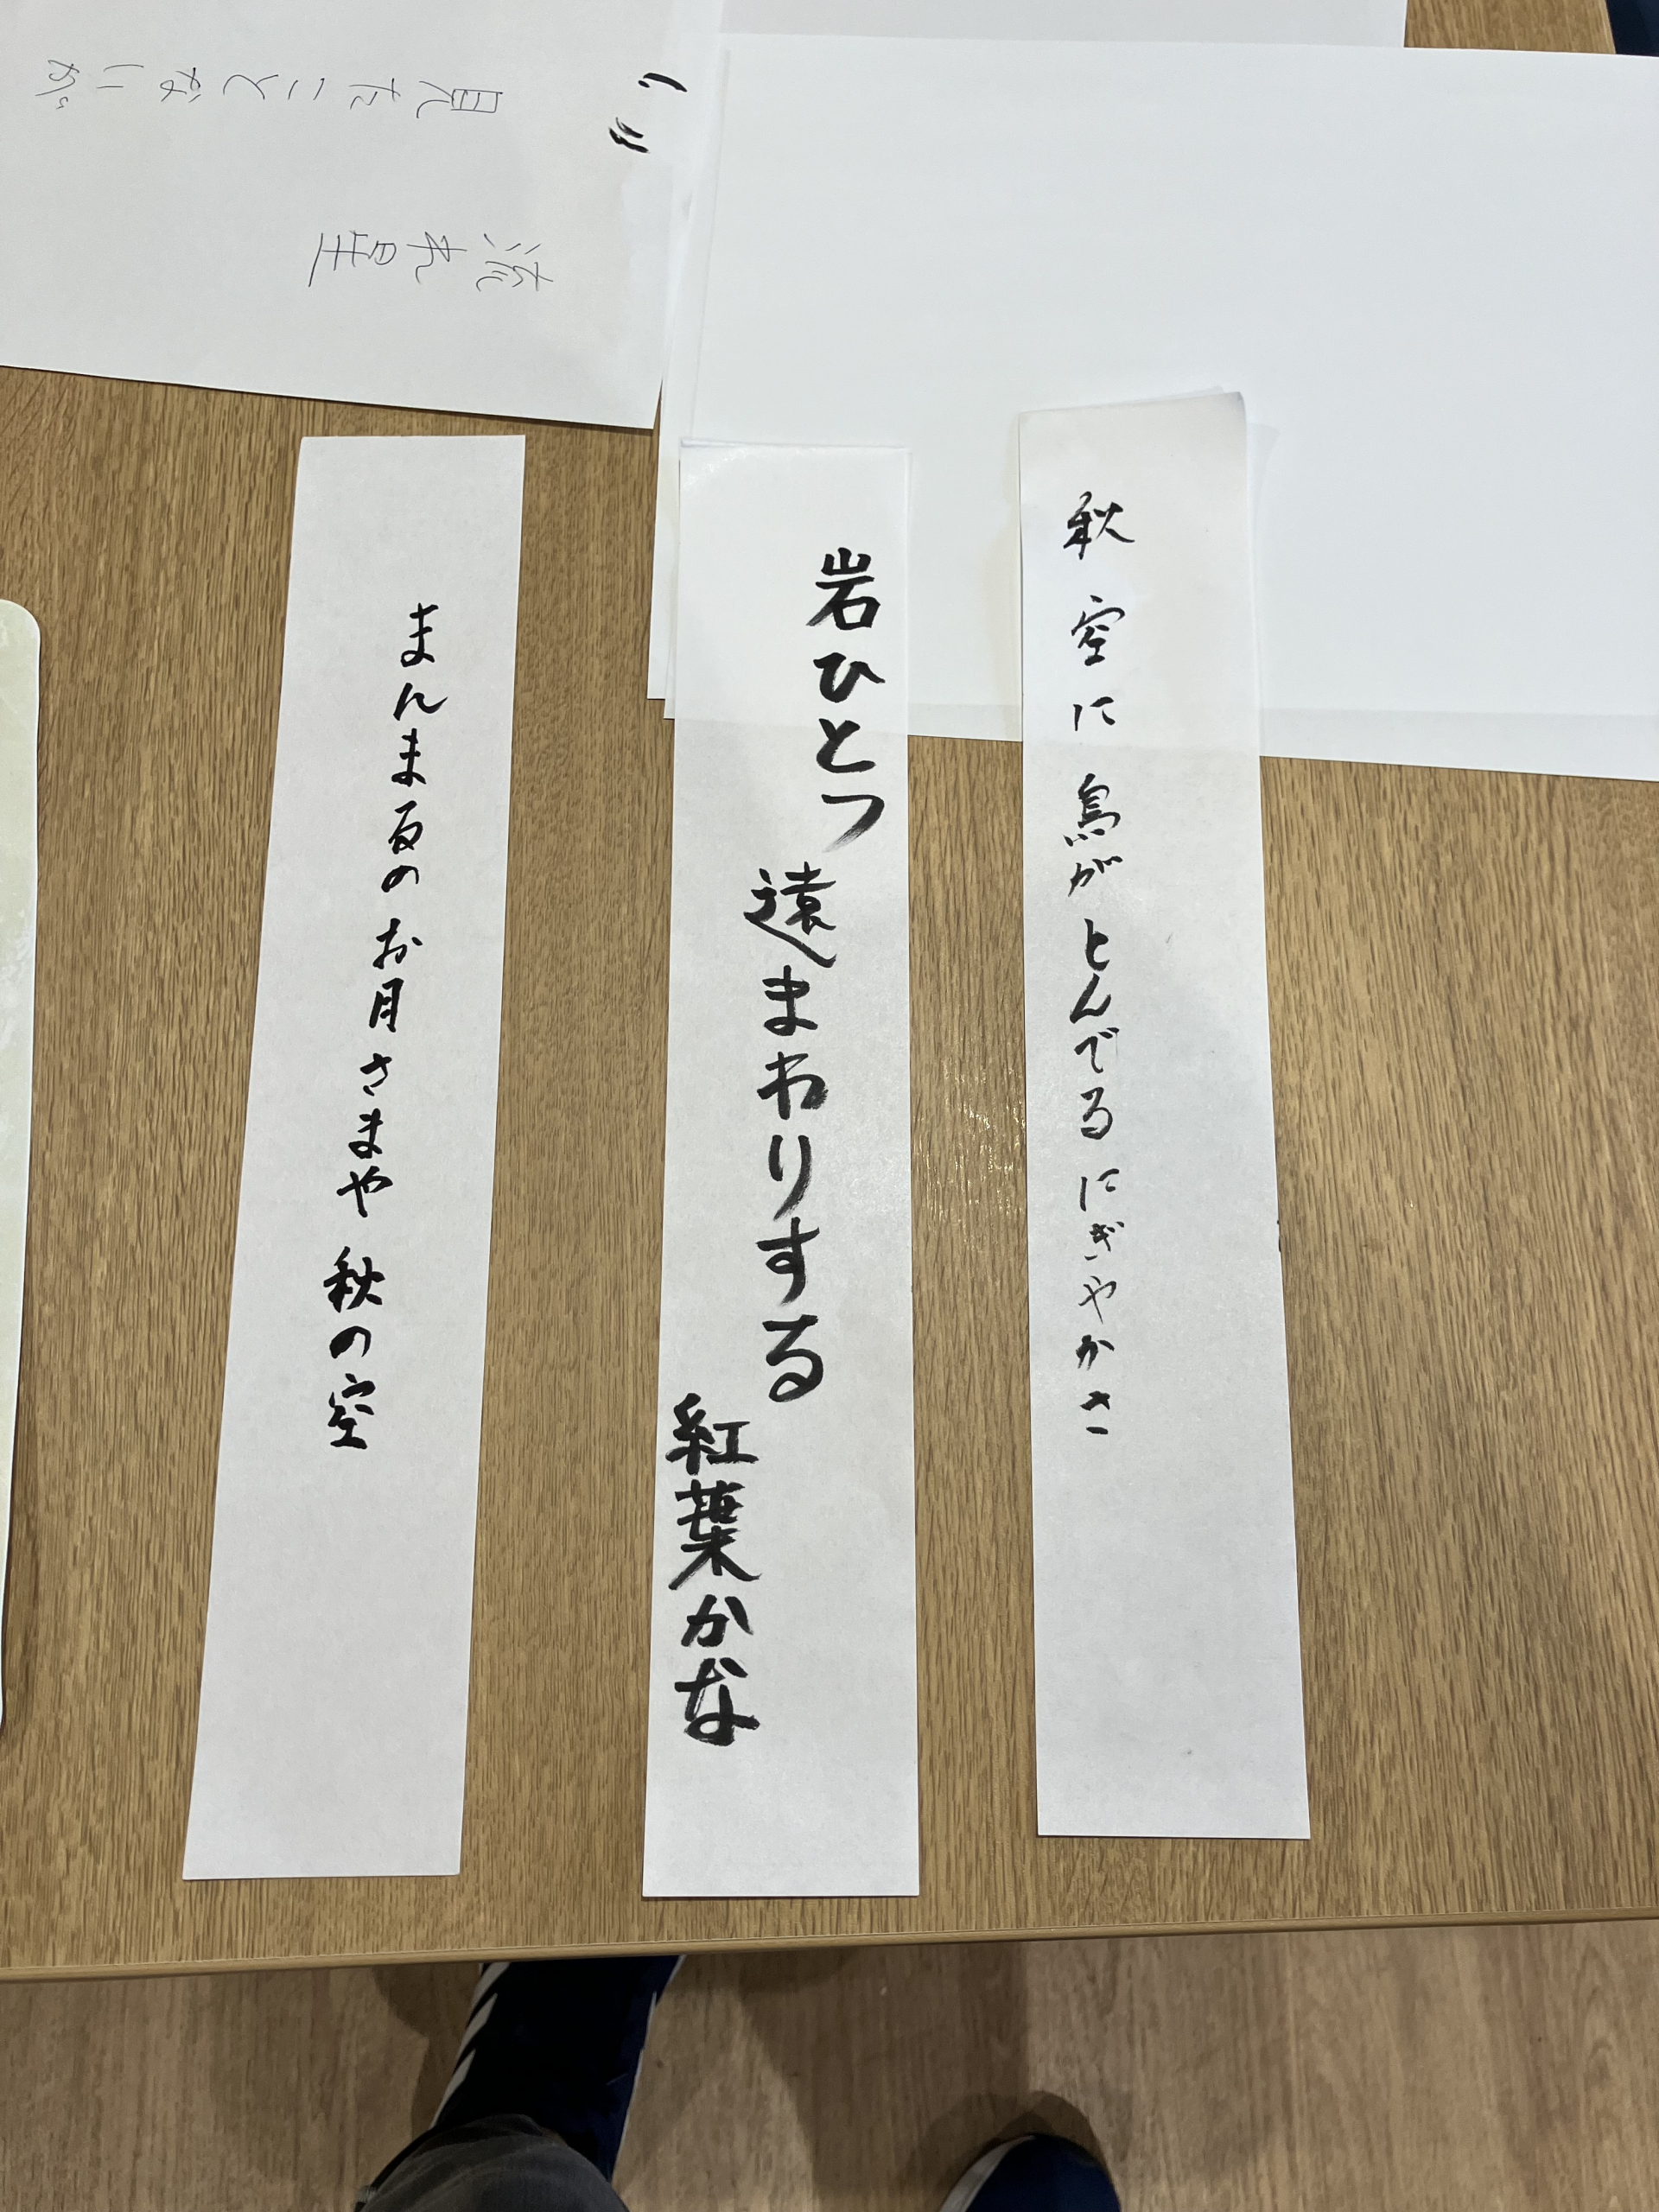 秋空に鳥がとんでるにぎやかさ
岩ひとつ
遠まわりする
紅葉かな
まんま夏のお月さまや秋の空
見たことないが
流れ星